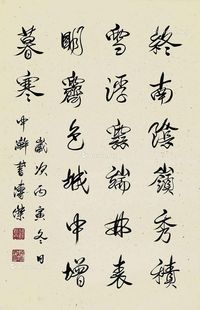 終南陰嶺秀積
雪浮雲端林表
明霽色城中增
暮寒
歲次丙寅冬日
中澣書溥傑